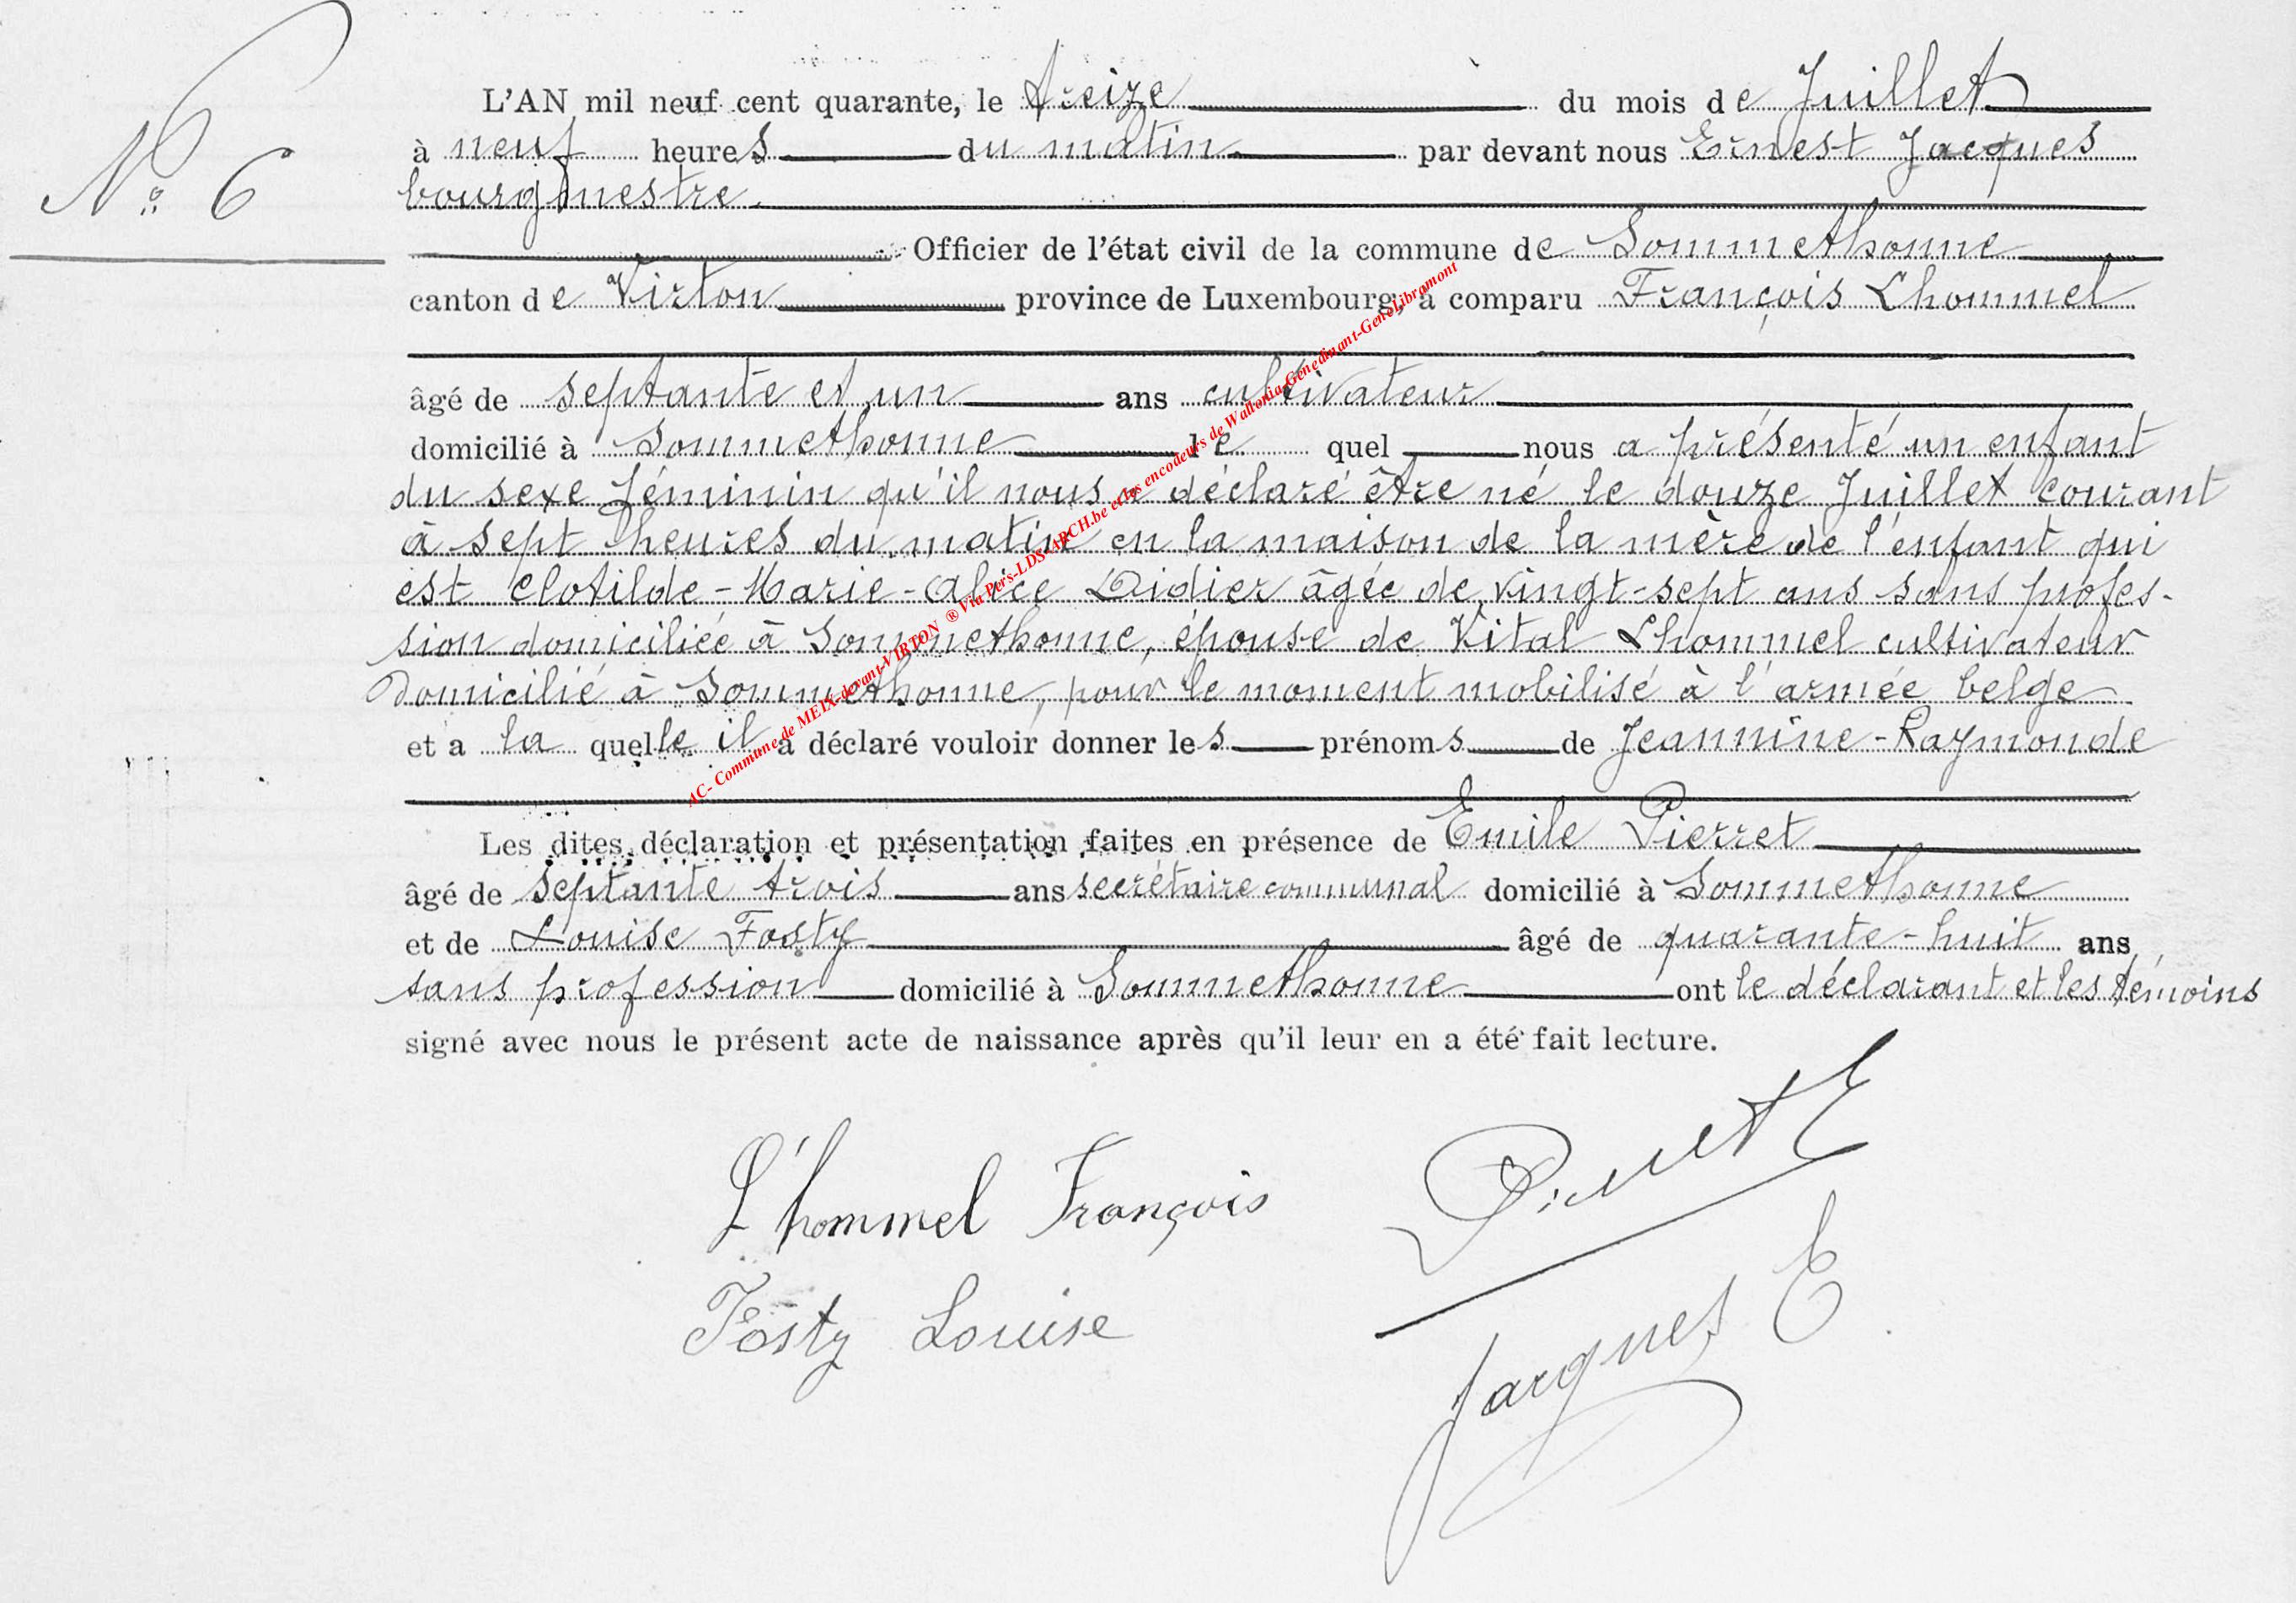 N° 6
L'AN mil neuf cent quarante, le treize du mois de Juillet
à neuf heures du matin par devant nous Ernest Jacques
bourgmestre.
Officier de l'état civil de la commune de Sommethonne
canton de Virton province de Luxembourg, a comparu François Lhommel
âgé de septante et un ans cultivateur
domicilié à Sommethonne le quel nous a présenté un enfant
du sexe féminin qu'il nous a déclaré être né le douze Juillet courant
à sept heures du matin en la maison de la mère de l'enfant qui
est Clotilde-Marie-Alice Didier âgée de vingt-sept ans sans profes-
sion domiciliée à Sommethonne, épouse de Vital Lhommel cultivateur
Domicilié à Sommethonne, pour le moment mobilisé à l'armée belge
et a la quelle il a déclaré vouloir donner les prénoms de Jeannine-Raymonde
Les dites déclaration et présentation faites en présence de Emile Pierret
âgé de septante trois ans secrétaire communal domicilié à Sommethonne
et de Louise Fosty âgé de quarante-huit ans
sans profession domicilié à Sommethonne ont le déclarant et les témoins
signé avec nous le présent acte de naissance après qu'il leur en a été fait lecture.
L'hommel François
Pierret E
Fosty Louise
Jacques E
AC- Commune de MEIX-devant-VIRTON ® Via Pers-LDS-ARCH.be et les encodeurs de Wallonia-Genedinant-GenoLibramont